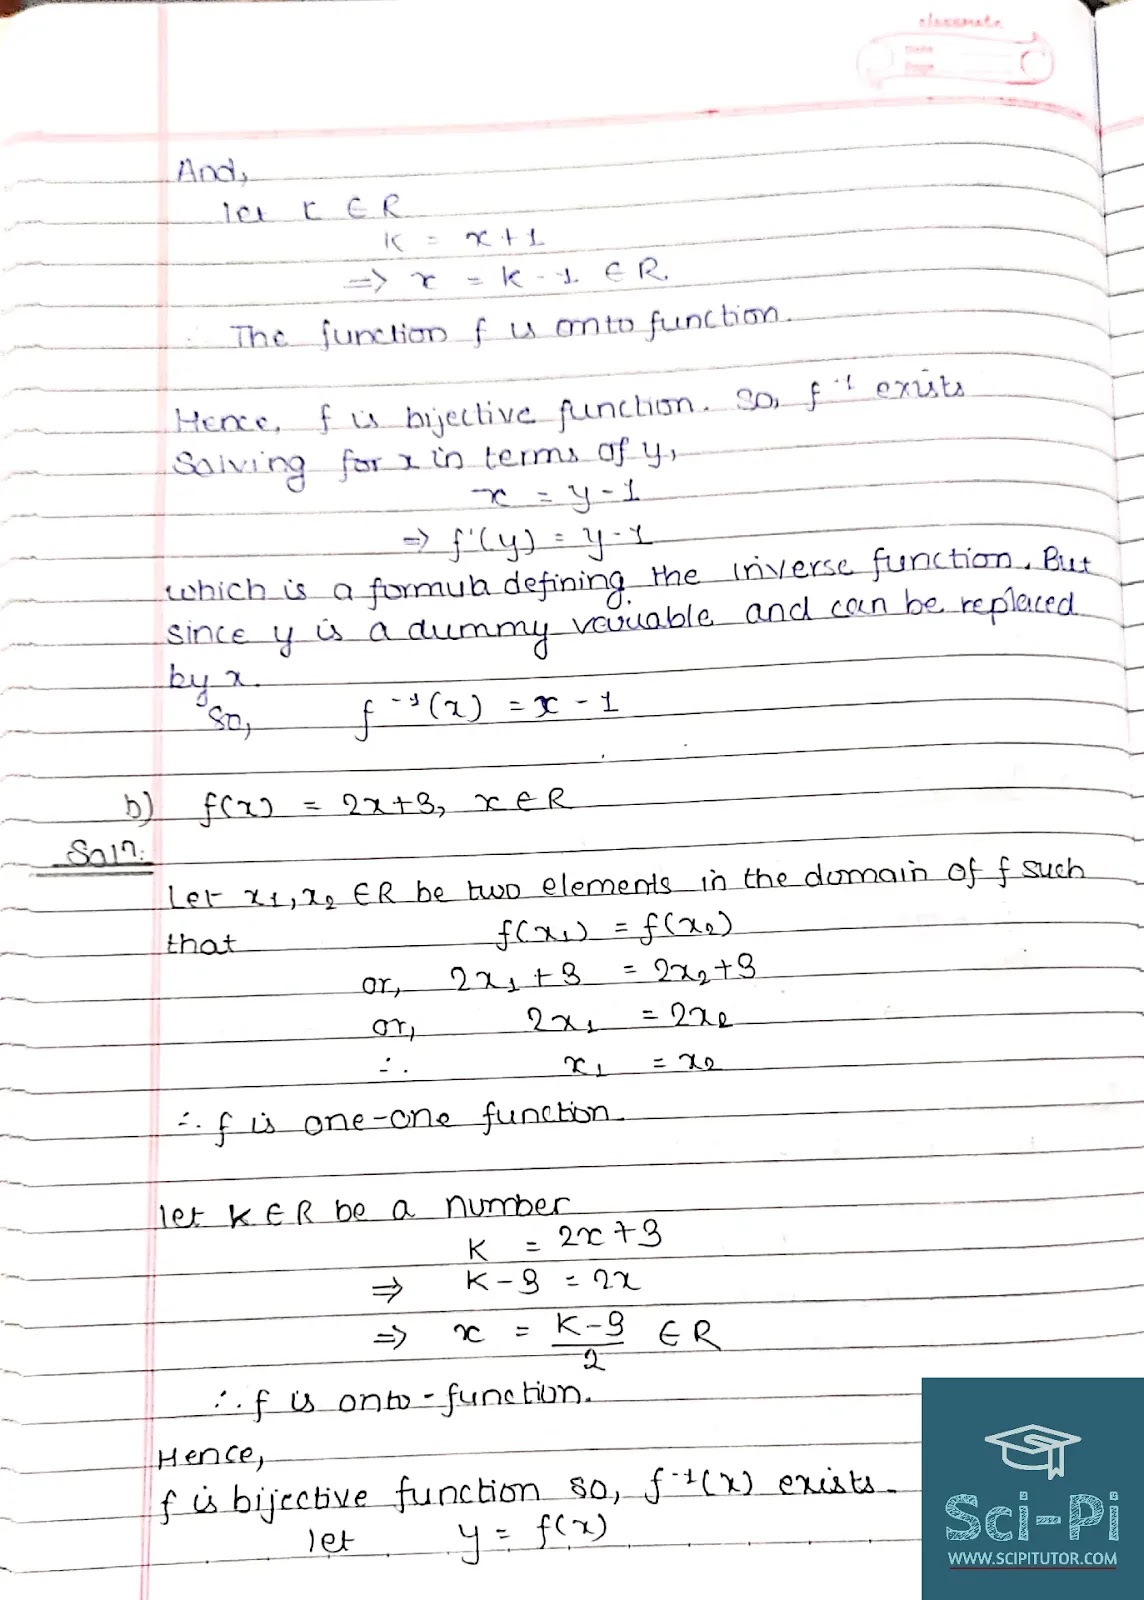 classmate
Date
Page
And,
let k ∈ R
k = x + 1
⇒ x = k - 1 ∈ R.
∴ The function f is onto function.
Hence, f is bijective function. So, f⁻¹ exists
Solving for x in terms of y,
x = y - 1
⇒ f⁻¹(y) = y - 1
which is a formula defining the inverse function. But
since y is a dummy variable and can be replaced
by x.
So, f⁻¹(x) = x - 1
b) f(x) = 2x+3, x ∈ R
Soln:
Let x₁, x₂ ∈ R be two elements in the domain of f such
that f(x₁) = f(x₂)
or, 2x₁ + 3 = 2x₂ + 3
or, 2x₁ = 2x₂
∴ x₁ = x₂
∴ f is one-one function.
let k ∈ R be a number
k = 2x + 3
⇒ k - 3 = 2x
⇒ x = (k-3)/2 ∈ R
∴ f is onto-function.
Hence,
f is bijective function so, f⁻¹(x) exists.
let y = f(x)
Sci-Pi
WWW.SCIPITUTOR.COM